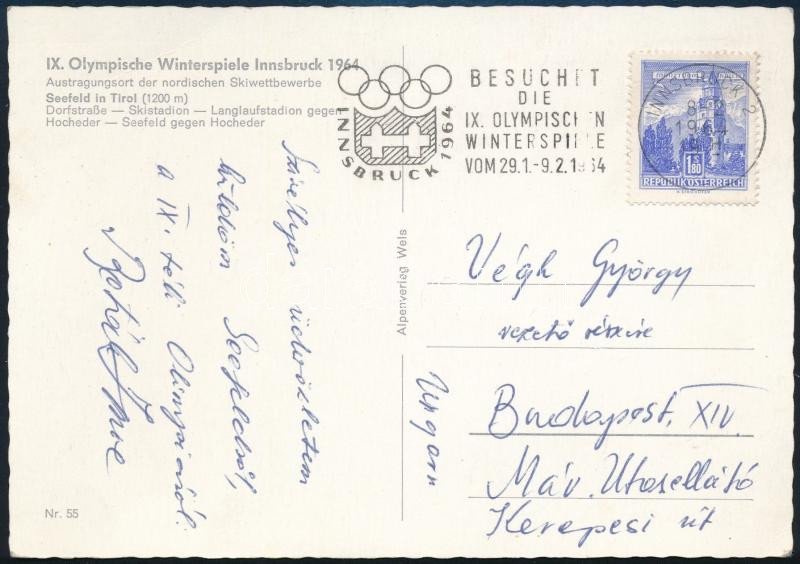 IX. Olympische Winterspiele Innsbruck 1964
Austragungsort der nordischen Skiwettbewerbe
Seefeld in Tirol (1200 m)
Dorfstraße — Skistadion — Langlaufstadion gegen
Hocheder — Seefeld gegen Hocheder
INNSBRUCK 1964
BESUCHET
DIE
IX. OLYMPISCHEN
WINTERSPIELE
VOM 29.1.-9.2.1964
INNSBRUCK 2
8. 2
1964
1 S 80
REPUBLIK ÖSTERREICH
Szívélyes üdvözletem
küldöm Seefeldről,
a IX. téli Olimpiáról.
Imre
Alpenverlag Wels
Végh György
vezető részére
Budapest, XIV.
Máv. Utasellátó
Kerepesi út
Ungarn
Nr. 55